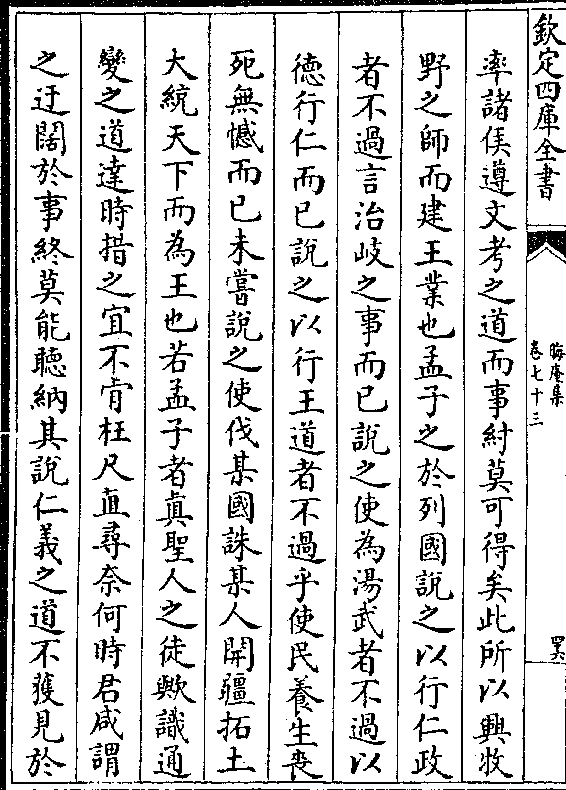 欽定四庫全書
晦庵集
卷七十三
四六
率諸侯遵文考之道而事紂莫可得矣此所以興牧
野之師而建王業也孟子之於列國說之以行仁政
者不過言治岐之事而已說之使為湯武者不過以
德行仁而已說之以行王道者不過乎使民養生喪
死無憾而已未嘗說之使伐某國誅某人開疆拓土
大統天下而為王也若孟子者真聖人之徒歟識通
變之道達時措之宜不肯枉尺直尋奈何時君咸謂
之迂闊於事終莫能聽納其說仁義之道不獲見於